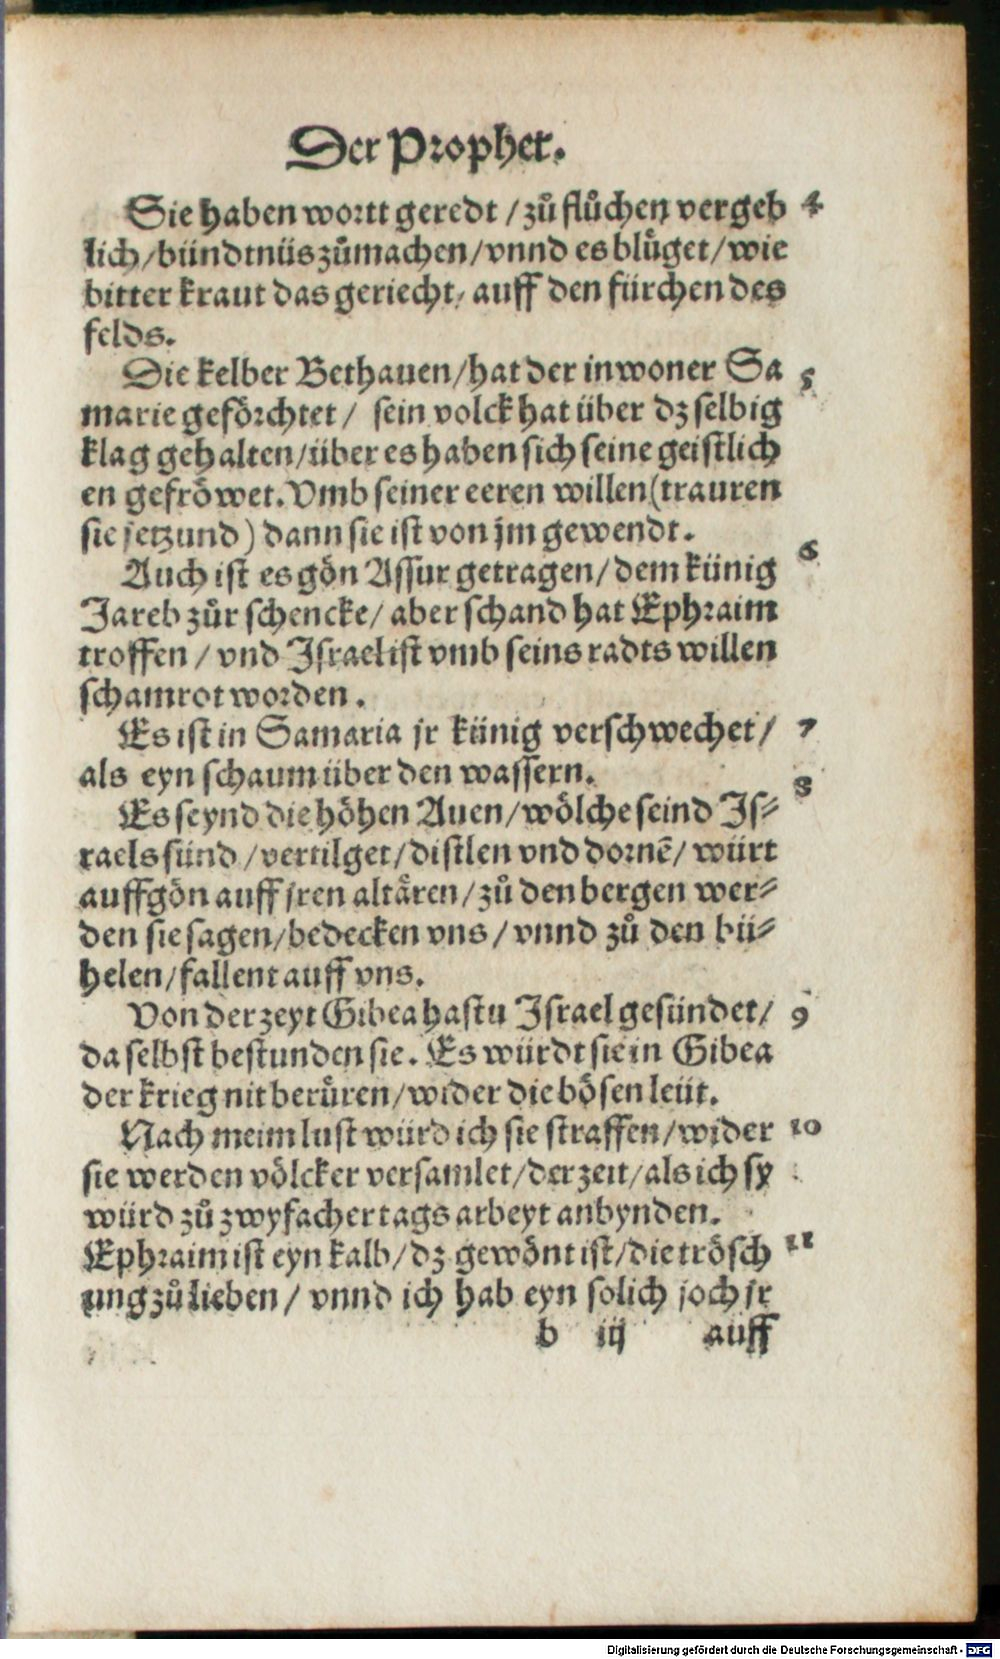 Der Prophet.
Sie haben wortt geredt / zů flůchen vergeb 4
lich / bündtnüs zůmachen / vnnd es blůget / wie
bitter kraut das geriecht / auff den fürchen des
felds.
Die kelber Bethauen / hat der inwoner Sa 5
marie geförchtet / sein volck hat über dz selbig
klag gehalten / über es haben sich seine geistlich
en gefröwet. Vmb seiner eeren willen (trauren
sie jetzund) dann sie ist von jm gewendt.
Auch ist es gön Assur getragen / dem künig 6
Jareb zůr schencke / aber schand hat Ephraim
troffen / vnd Israel ist vmb seins radts willen
schamrot worden.
Es ist in Samaria jr künig verschwechet / 7
als eyn schaum über den wassern.
Es seynd die höhen Auen / wölche seind Is⸗ 8
raels sünd / vertilget / distlen vnd dornē / würt
auffgön auff jren altären / zů den bergen wer⸗
den sie sagen / bedecken vns / vnnd zů den bü⸗
helen / fallent auff vns.
Von der zeyt Gibea hastu Israel gesündet / 9
da selbst bestunden sie. Es würdt sie in Gibea
der krieg nit berůren / wider die bösen leüt.
Nach meim lust würd ich sie straffen / wider 10
sie werden völcker versamlet / der zeit / als ich sy
würd zů zwyfacher tags arbeyt anbynden.
Ephraim ist eyn kalb / dz gewönt ist / die trösch 11
ung zů lieben / vnnd ich hab eyn solich joch jr
b iij auff
Digitalisierung gefördert durch die Deutsche Forschungsgemeinschaft - DFG